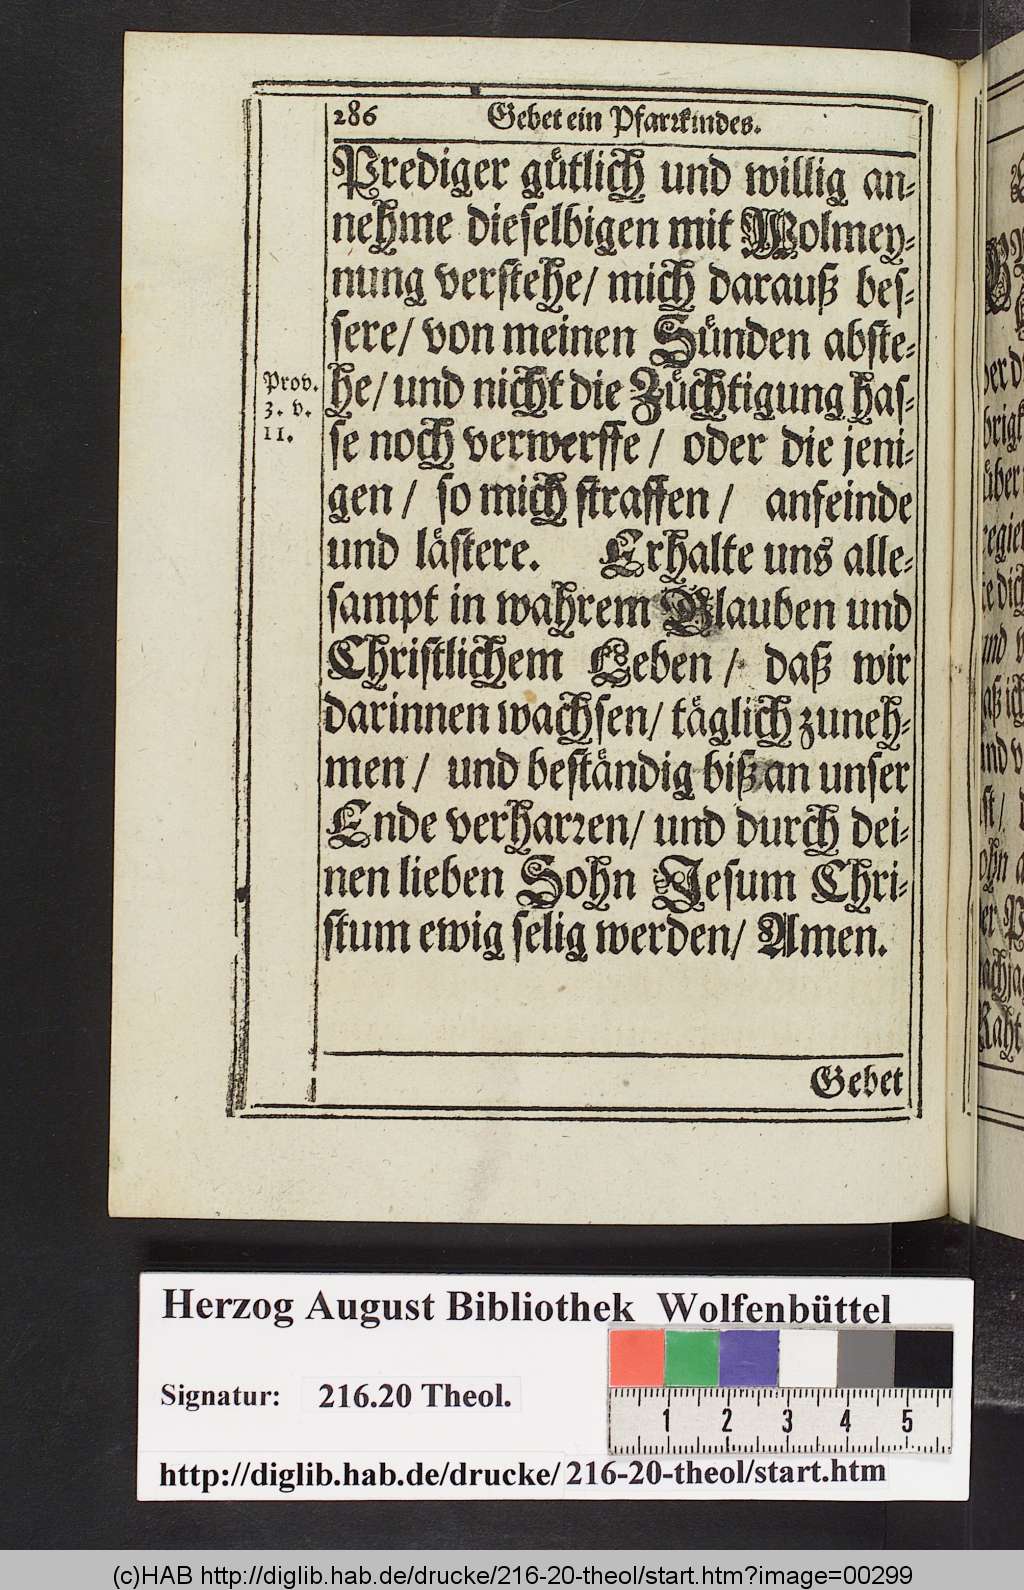 286 Gebet ein Pfarrkindes.
Prediger gütlich und willig an-
nehme dieselbigen mit Wolmey-
nung verstehe/ mich darauß bes-
sere/ von meinen Sünden abste-
Prov.
3. v.
11.
he/ und nicht die Züchtigung has-
se noch verwerffe/ oder die jeni-
gen/ so mich straffen/ anfeinde
und lästere. Erhalte uns alle-
sampt in wahrem Glauben und
Christlichem Leben/ daß wir
darinnen wachsen/ täglich zuneh-
men/ und beständig biß an unser
Ende verharren/ und durch dei-
nen lieben Sohn Jesum Chri-
stum ewig selig werden/ Amen.
Gebet
Herzog August Bibliothek Wolfenbüttel
Signatur: 216.20 Theol.
1 2 3 4 5
http://diglib.hab.de/drucke/216-20-theol/start.htm
(c)HAB http://diglib.hab.de/drucke/216-20-theol/start.htm?image=00299